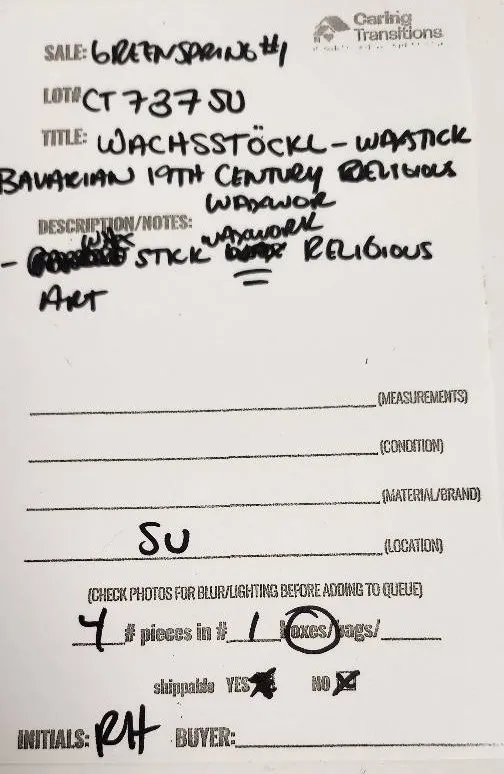 Caring
Transitions
SALE: GREENSPRING #1
LOT# CT 737 SU
TITLE: WACHSSTÖCKL - WAXSTICK
BAVARIAN 19TH CENTURY RELIGIOUS
WAXWOR
DESCRIPTION/NOTES:
- WAX STICK WAXWORK RELIGIOUS
ART
(MEASUREMENTS)
(CONDITION)
(MATERIAL/BRAND)
SU (LOCATION)
(CHECK PHOTOS FOR BLUR/LIGHTING BEFORE ADDING TO QUEUE)
4 # pieces in # 1 boxes/bags/
shippable YES NO
INITIALS: RH BUYER: